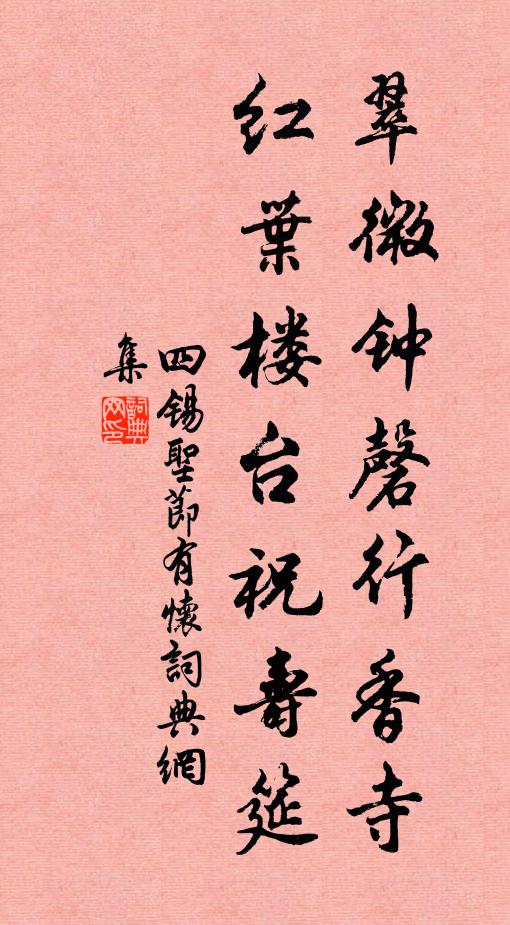 翠微钟磬行香寺
红葉楼台祝壽筵
四锡聖節有懷詞典網
集
詞典网印